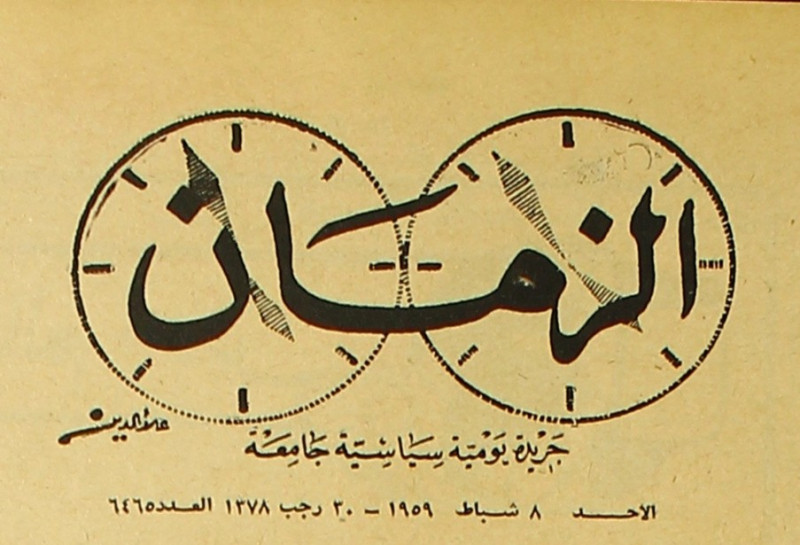 الزمان
علاءالدين
جَريدة يَوْميّة سِيَاسِيّة جَامِعَة
الاحـــد ٨ شباط ١٩٥٩ – ٣٠ رجب ١٣٧٨ العـدد ٦٤٦٥